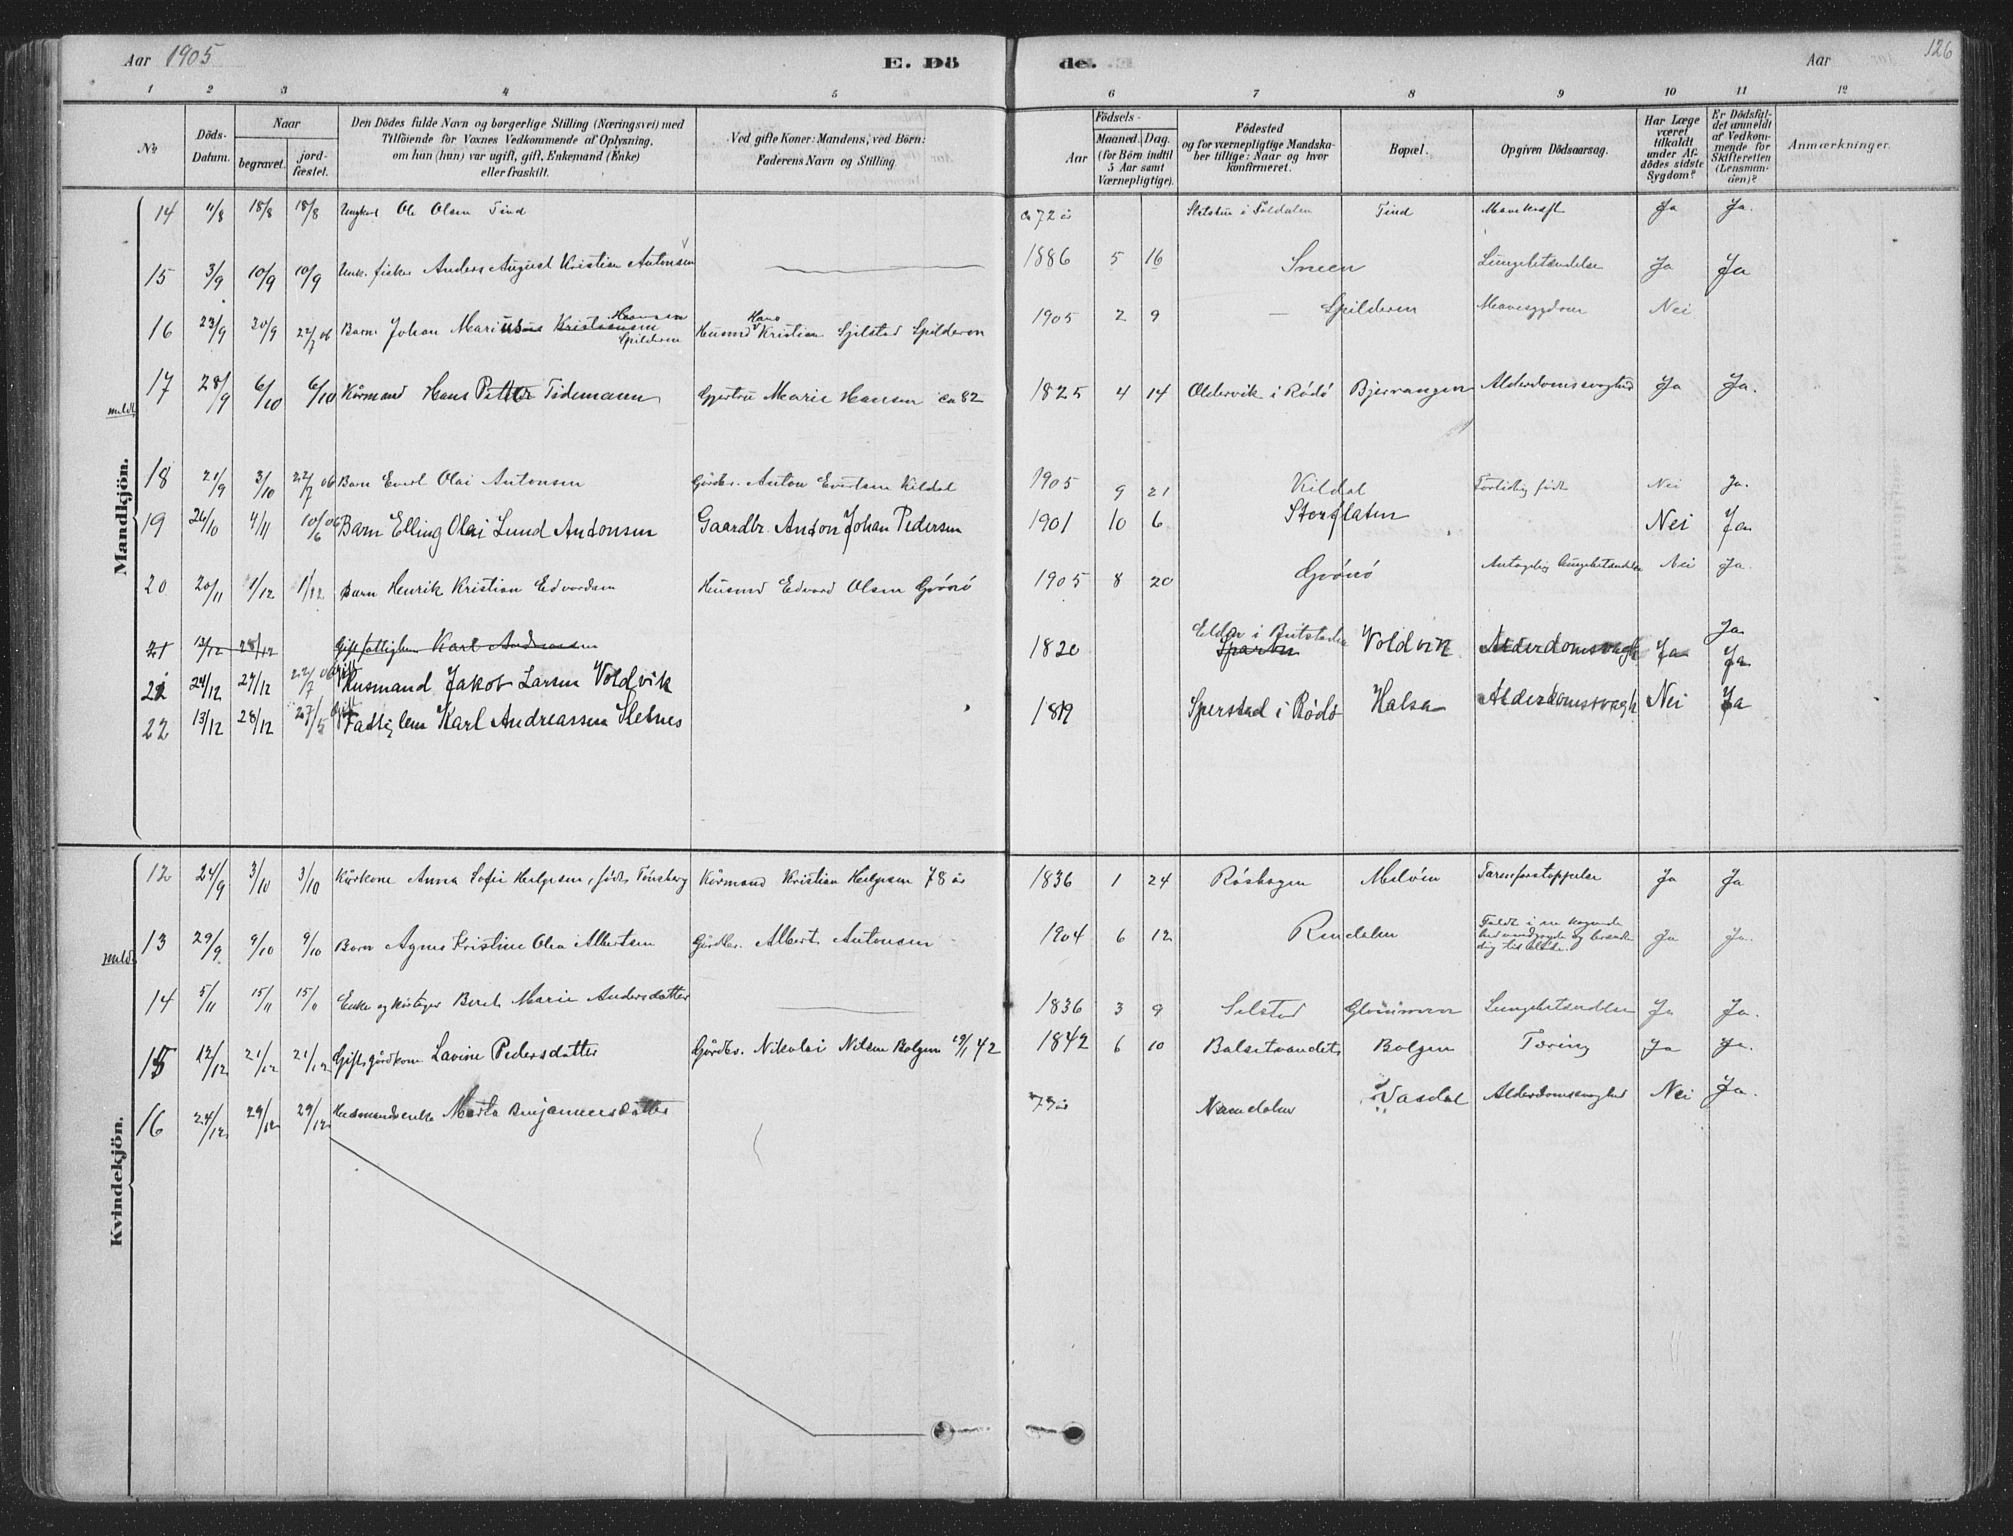 Aar 1905 E. Dö de. Aar 126
1 2 3 4 5 6 7 8 9 10 11 12
No
Döds-Datum.
Naar
begravet.
jord-fæstet.
Den Dödes fulde Navn og borgerlige Stilling (Næringsvei) med
Tilföiende for Voxnes Vedkommende af Oplysning,
om han (hun) var ugift, gift, Enkemand (Enke)
eller fraskilt.
Ved gifte Koner: Mandens, ved Börn:
Faderens Navn og Stilling.
Födsels-
Aar
Maaned. Dag.
(for Börn indtil
5 Aar samt
Værnepligtige).
Födested
og for værnepligtige Mandska-
ber tillige: Naar og hvor
konfirmeret.
Bopæl.
Opgiven Dödsaarsag.
Har Læge
været
tilkaldt
under Af-
dödes sidste
Sygdom?
Er Dödsfal-
det anmeldt
af Vedkom-
mende for
Skifteretten
(Lensman-
den)?
Anmærkninger.
Mandkjön.
14 11/8 18/8 18/8 Ungkarl Ole Olsen Tind ca 72 år Tind Mavekræft Ja Ja.
15 3/9 10/9 10/9 Unk. fisker Anders August Kristian Antonsen 1886 5 16 Sneen Lungebetændelse Ja Ja
16 23/9 30/9 22/7 06 Barn Johan Marius Kristiansen Hansen Spilderen Husmd Hans Kristian Spilderen 1905 2 9 Spilderen Mavesygdom Nei
17 28/9 6/10 6/10 Kårmand Hans Petter Tidemann Gjertru Marie Hansen ca 82 1825 4 14 Oldervik i Rödö Bjerrangen Alderdomssvaghed Ja Ja.
meldt
18 21/9 3/10 22/7 06 Barn Evert Olai Antonsen Gårdbr. Anton Evertsen Kildal 1905 9 21 Kildal Fortidlig födt Nei Ja.
19 26/10 4/11 10/6 06 Barn Elling Olai Lund Andonsen Gaardbr. Andon Johan Pedersen 1901 10 6 Storflaten Nei Ja
20 20/11 1/12 1/12 Barn Henrik Kristian Edvardsen Husmd Edvard Olsen Grönö 1905 8 20 Grönö Antagelig lungebetændelse Nei Ja.
21 13/12 28/12 Gift fattiglem Karl Andreassen 1820 Voldvik Alderdomsvagh Ja Ja
21 24/12 27/12 22/7 06 Gift Husmand Jakob Larsen Voldvik Ja
22 13/12 28/12 27/5 Gift Fattiglem Karl Andreassen Sletnes 1819 Sperstad i Rödö Halsa Alderdomssvagh Nei Ja
Kvindekjön.
12 24/9 3/10 3/10 Kårkone Anna Sofie Helgesen, födt Tönsberg Kårmand Kristian Helgesen 78 år 1836 1 24 Röshagen Melöen Tarmforstoppelse Ja Ja
13 29/9 9/10 9/10 Barn Agnes Kristine Olea Albertsen Gårdbr. Albert Antonsen 1904 6 12 Rendalen Faldt i en kogende vandgryde og brændte sig til døde. Ja Ja.
meldt
14 5/11 15/11 15/11 Enke og Berit Marie Andersdatter 1836 3 9 Selstad Glommen Lungebetændelse Ja Ja.
15 12/12 21/12 21/12 Gift gårdkone Lavine Pedersdatter Gårdbr. Nikolai Nilsen Bolgen 19/1 42 1842 6 10 Balsetvandet Bolgen Tæring Ja Ja.
16 24/12 29/12 29/12 Husmandsenke Marta Benjaminsdatter 79 år Namdalen Vasdal Alderdomssvaghed Nei Ja.